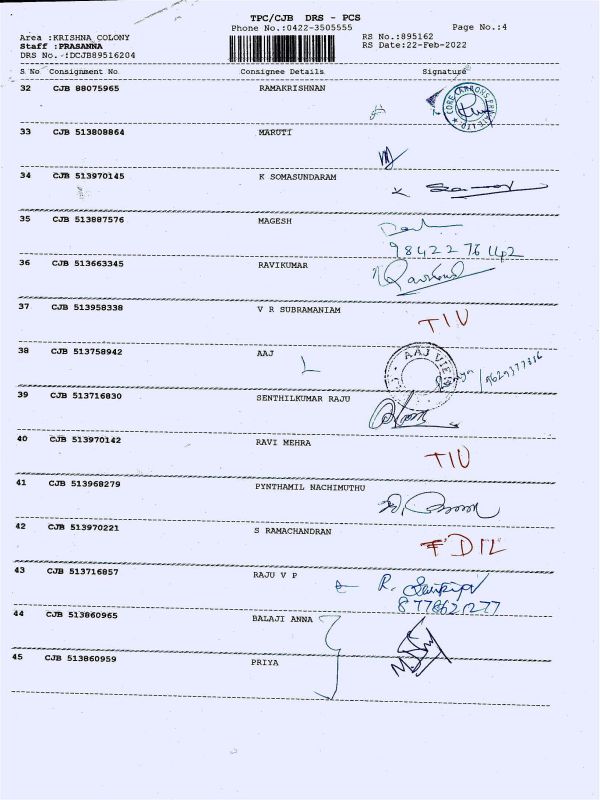 TPC/CJB DRS - PCS
Phone No.:0422-3505555 Page No.:4
Area :KRISHNA COLONY RS No.:895162
Staff :PRASANNA RS Date:22-Feb-2022
DRS No.-:DCJB89516204
S No Consignment No Consignee Details Signature
32 CJB 88075965 RAMAKRISHNAN
33 CJB 513808864 MARUTI
34 CJB 513970145 K SOMASUNDARAM
35 CJB 513887576 MAGESH
98422 76142
36 CJB 513663345 RAVIKUMAR
37 CJB 513958338 V R SUBRAMANIAM TIU
38 CJB 513758942 AAJ AAJ VIEW
39 CJB 513716830 SENTHILKUMAR RAJU
40 CJB 513970142 RAVI MEHRA TIU
41 CJB 513968279 PYNTHAMIL NACHIMUTHU
42 CJB 513970221 S RAMACHANDRAN
43 CJB 513716857 RAJU V P R.
44 CJB 513860965 BALAJI ANNA
45 CJB 513860959 PRIYA